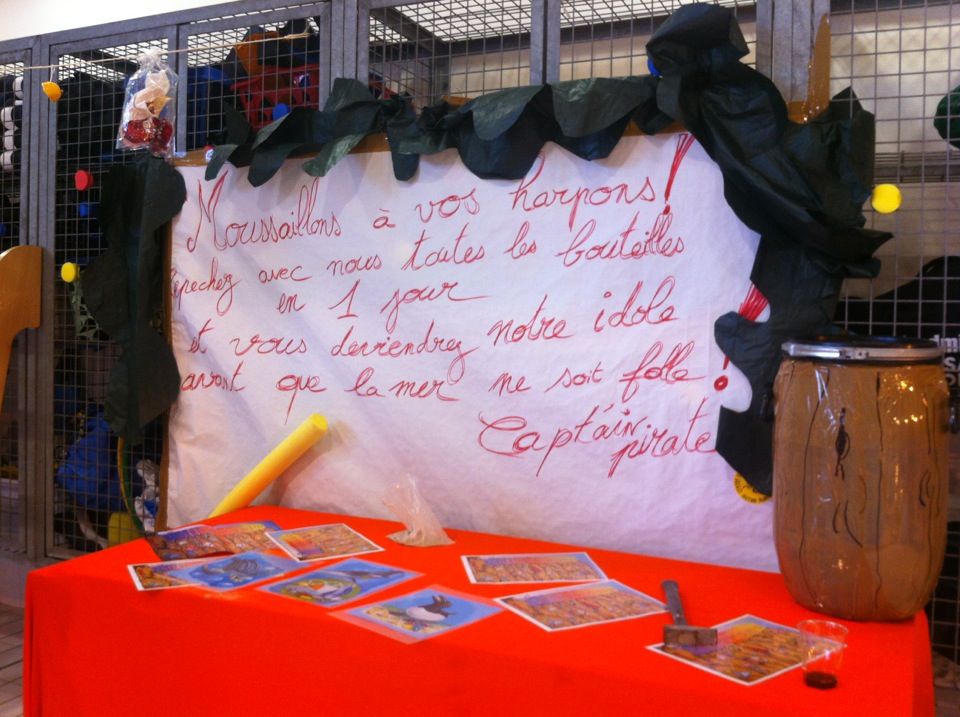 Moussaillons à vos harpons!
Repechez avec nous toutes les bouteilles
en 1 jour
et vous deviendrez notre idole
avant que la mer ne soit folle!
Capt'ain
pirate